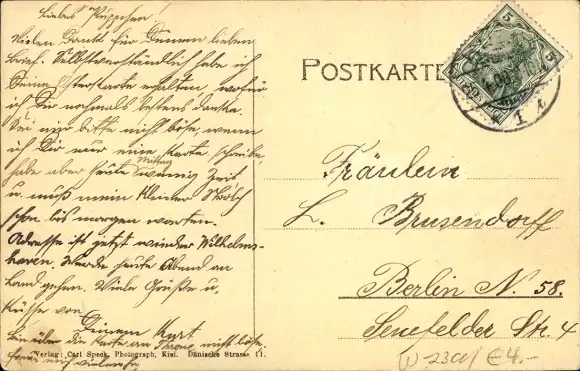 Liebes Püppchen!
Vielen Dank für Deinen lieben
Brief. Selbstverständlich habe ich
Deine Osterkarte erhalten, wofür
ich Dir nochmals bestens danke.
Sei mir bitte nicht böse, wenn
ich Dir nur eine Karte schreibe,
habe aber heute Mittag wenig Zeit
u. muß mein kleiner
schon bis morgen warten.
Adresse ist jetzt wieder Wilhelms-
haven. Werde heute Abend an
Land gehen. Viele Grüße u.
Küsse von
Deinem Kurt
Sei über die Karte an nicht böse,
Verlag: Carl Speck, Photograph, Kiel. Dänische Strasse 11.
POSTKARTE
5 5
Fräulein
L. Brusendorff
Berlin N. 58.
Senefelder Str. 4
W 2301/ €4.-